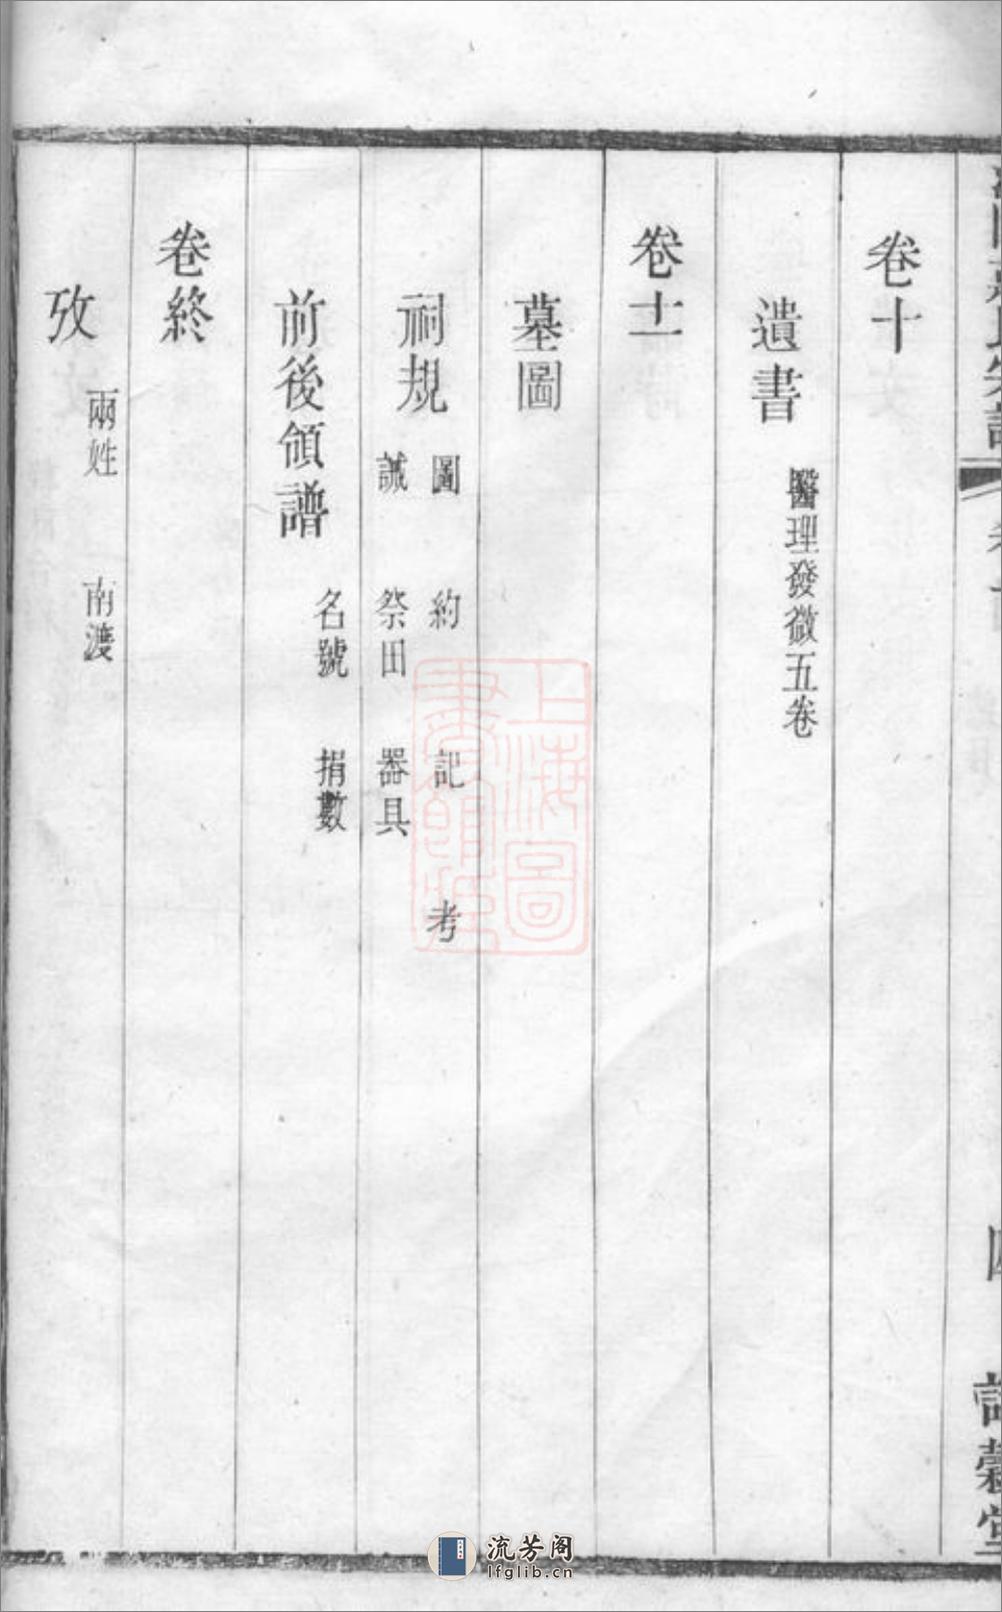 卷十
遺書 醫理發微五卷
卷十一
墓圖
祠規 圖 約 記 考
誡 祭田 器具
前後領譜 名號 捐數
卷終
攷 兩姓 南渡
上海圖
書館藏
流芳阁
lfglib.cn